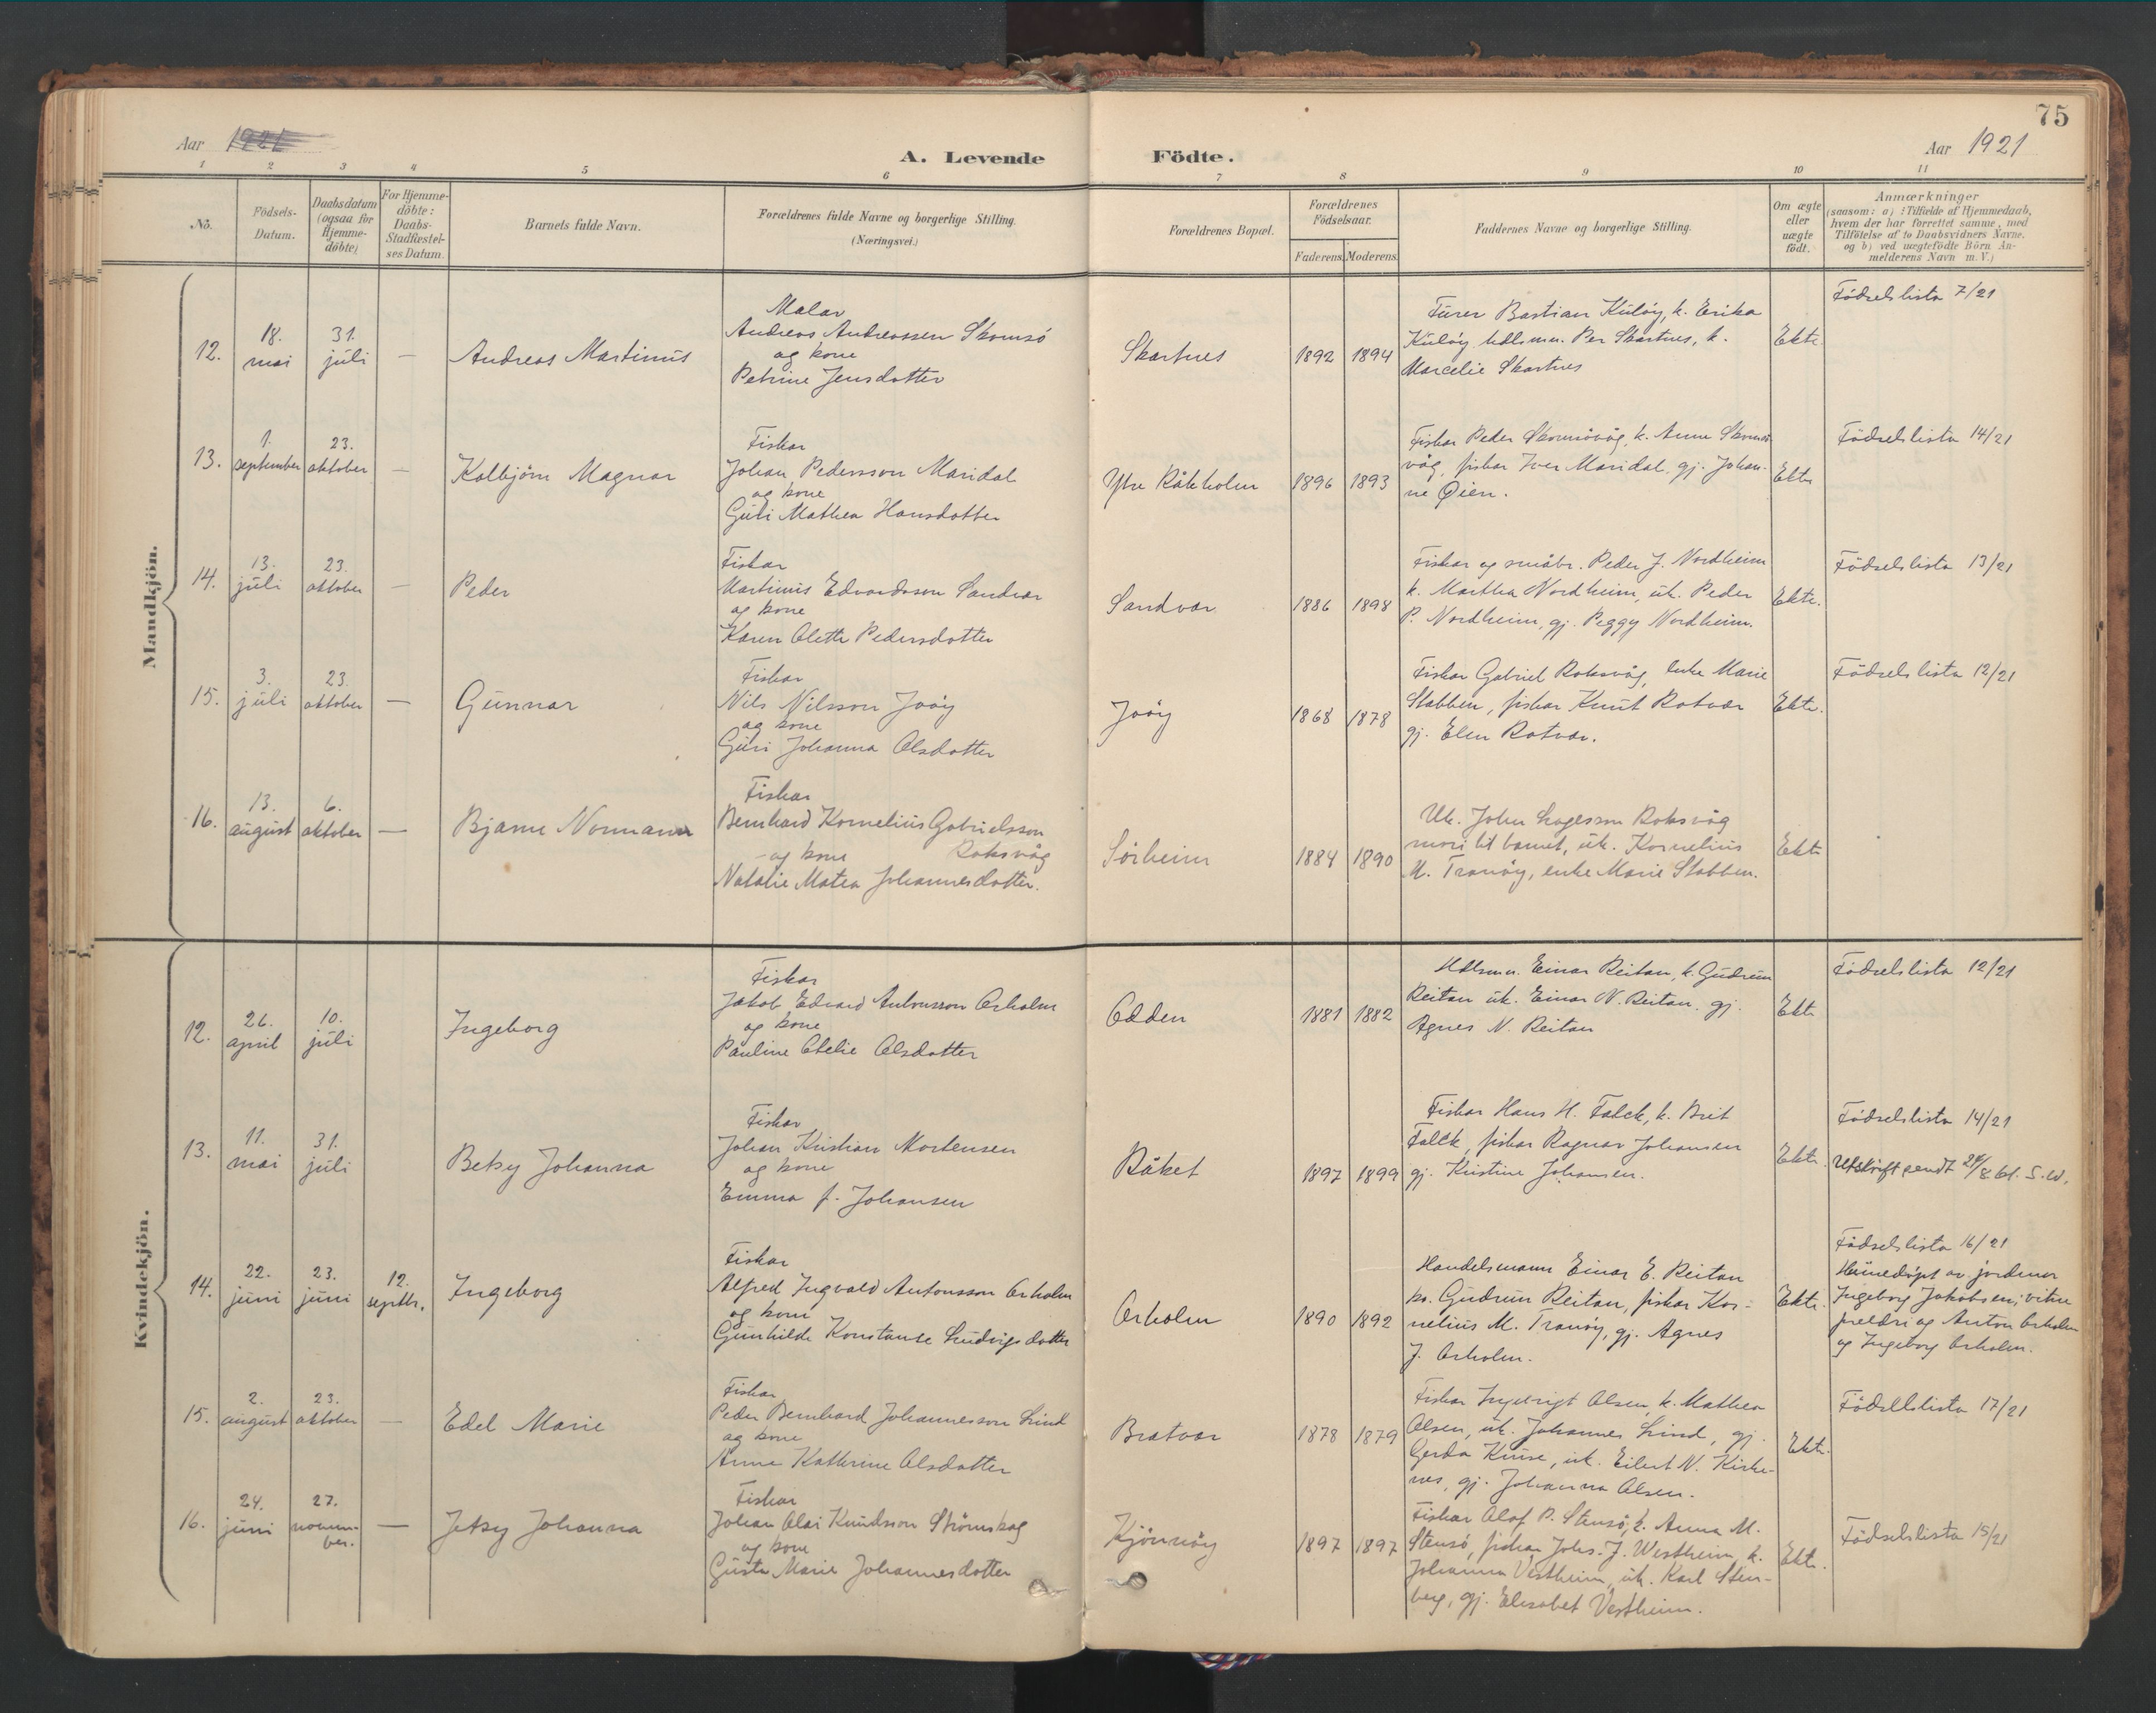 75
Aar 1921
A. Levende Födte.
Aar 1921
1 2 3 4 5 6 7 8 9 10 11
No.
Födsels-
Datum.
Daabsdatum
(ogsaa for
Hjemme-
döbte)
For Hjemme-
döbte:
Daabs-
Stadfæstel-
ses Datum.
Barnets fulde Navn.
Forældrenes fulde Navne og borgerlige Stilling.
(Næringsvei.)
Forældrenes Bopæl.
Forældrenes
Födselsaar.
Faderens. Moderens.
Faddernes Navne og borgerlige Stilling.
Om ægte
eller
uægte
født.
Anmærkninger
(saasom: a) : Tilfælde af Hjemmedaab,
hvem der har forrettet samme, med
Tilföielse af to Daabsvidners Navne,
og b) ved uægtefödte Börn An-
melderens Navn m. V.)
Mandkjön.
12.
18.
mai
31.
juli
—
Andreas Martinus
Malar
Andreas Andreassen Skomsö
og kone
Petrine Jensdotter
Skartnes
1892 1894
Furer Bastian Kulöy, k. Erika
Kulöy hdlsmn. Per Skartnes, k.
Marcelie Skartnes
Ekte.
Födselslista 7/21
13.
1.
september
23.
oktober
—
Kolbjörn Magnar
Fiskar
Johan Pedersson Maridal
og kone
Guli Mathea Hansdotter
Ytre Råkholm
1896 1893
Fiskar Peder Skomsövåg, k. Anne Skomsö
våg, fiskar Iver Maridal, gj. Johan-
ne Øien.
Ekte
Födselslista 14/21
14.
13.
juli
23.
oktober
—
Peder
Fiskar
Martinus Edvardsson Sandvar
og kone
Karen Olette Pedersdotter
Sandvar
1886 1898
Fiskar og småbr. Peder J. Nordheim
k. Martha Nordheim, uk. Peder
P. Nordheim, gj. Peggy Nordheim.
Ekte.
Födselslista 13/21
15.
3.
juli
23.
oktober
—
Gunnar
Fiskar
Nils Nilsson Joöy
og kone
Guri Johanna Olsdotter
Joöy
1868 1878
Fiskar Gabriel Roksvåg, enke Marie
Stabben, fiskar Knut Rotvær
gj. Elen Rotvær.
Ekte.
Födselslista 12/21
16.
13.
august
6.
oktober
—
Bjarne Normann
Fiskar
Bernhard Kornelius Gabrielsson
og kone Roksvåg
Natalie Matea Johannesdotter.
Sörheim
1884 1890
Uk. John Roksvåg
mori til barnet, uk. Kornelius
M. Tranöy, enke Marie Stabben.
Ekte
Kvindekjön.
12.
26.
april
10.
juli
Ingeborg
Fiskar
Jakob Edvard Antonsson Orholm
og kone
Pauline Otelie Olsdotter
Odden
1881 1882
Hdlsmn. Einar Reitan, k. Gudrun
Reitan uk. Einar N. Reitan. gj.
Agnes N. Reitan
Ekte
Födselslista 12/21
13.
11.
mai
31.
juli
Betsy Johanna
Fiskar
Johan Kristian Mortensen
og kone
Emma f. Johansen
Råket
1897 1899
Fiskar Hans H. Falck, k. Brit
Falck, fiskar Ragnar Johansen
gj. Kristine Johansen.
Ekte.
Födselslista 14/21
Utskrift sendt 24/8 61. S.W.
14.
22.
juni
23.
juni
12.
septbr.
Ingeborg
Fiskar
Alfred Ingvald Antonsson Orholm
og kone
Gunhilde Konstanse Ludvigsdotter
Orholm
1890 1892
Handelsmann Einar E. Reitan
ko. Gudrun Reitan, fiskar Kor-
nelius M. Tranöy, gj. Agnes
J. Orholm.
Ekte.
Födselslista 16/21
Heimedöpt av jordmor
Ingeborg Jakobsen; vitne
foreldri og Anton Orholm
og Ingeborg Orholm.
15.
2.
august
23.
oktober
—
Edel Marie
Fiskar
Peder Bernhard Johannesson Lind
og kone
Anne Kathrine Olsdotter
Bratvær
1878 1879
Fiskar Ingebrigt Olsen, k. Mathea
Olsen, uk. Johannes Lind, gj.
Gerda Knise, uk. Eilert N. Kirke-
nes, gj. Johanna Olsen.
Ekte.
Födselslista 17/21
16.
24.
juni
27.
novem-
ber.
—
Jetsy Johanna
Fiskar
Johan Olai Knudsson Strömskag
og kone
Guste Marie Johannesdotter
Kjönnöy
1897 1897
Fiskar Olaf P. Stensö, k. Anna M.
Stensö, fiskar Johs. J. Westheim, k.
Johanna Vestheim, uk. Karl Sten-
berg, gj. Elisabet Vestheim.
Ekte.
Födselslista 15/21